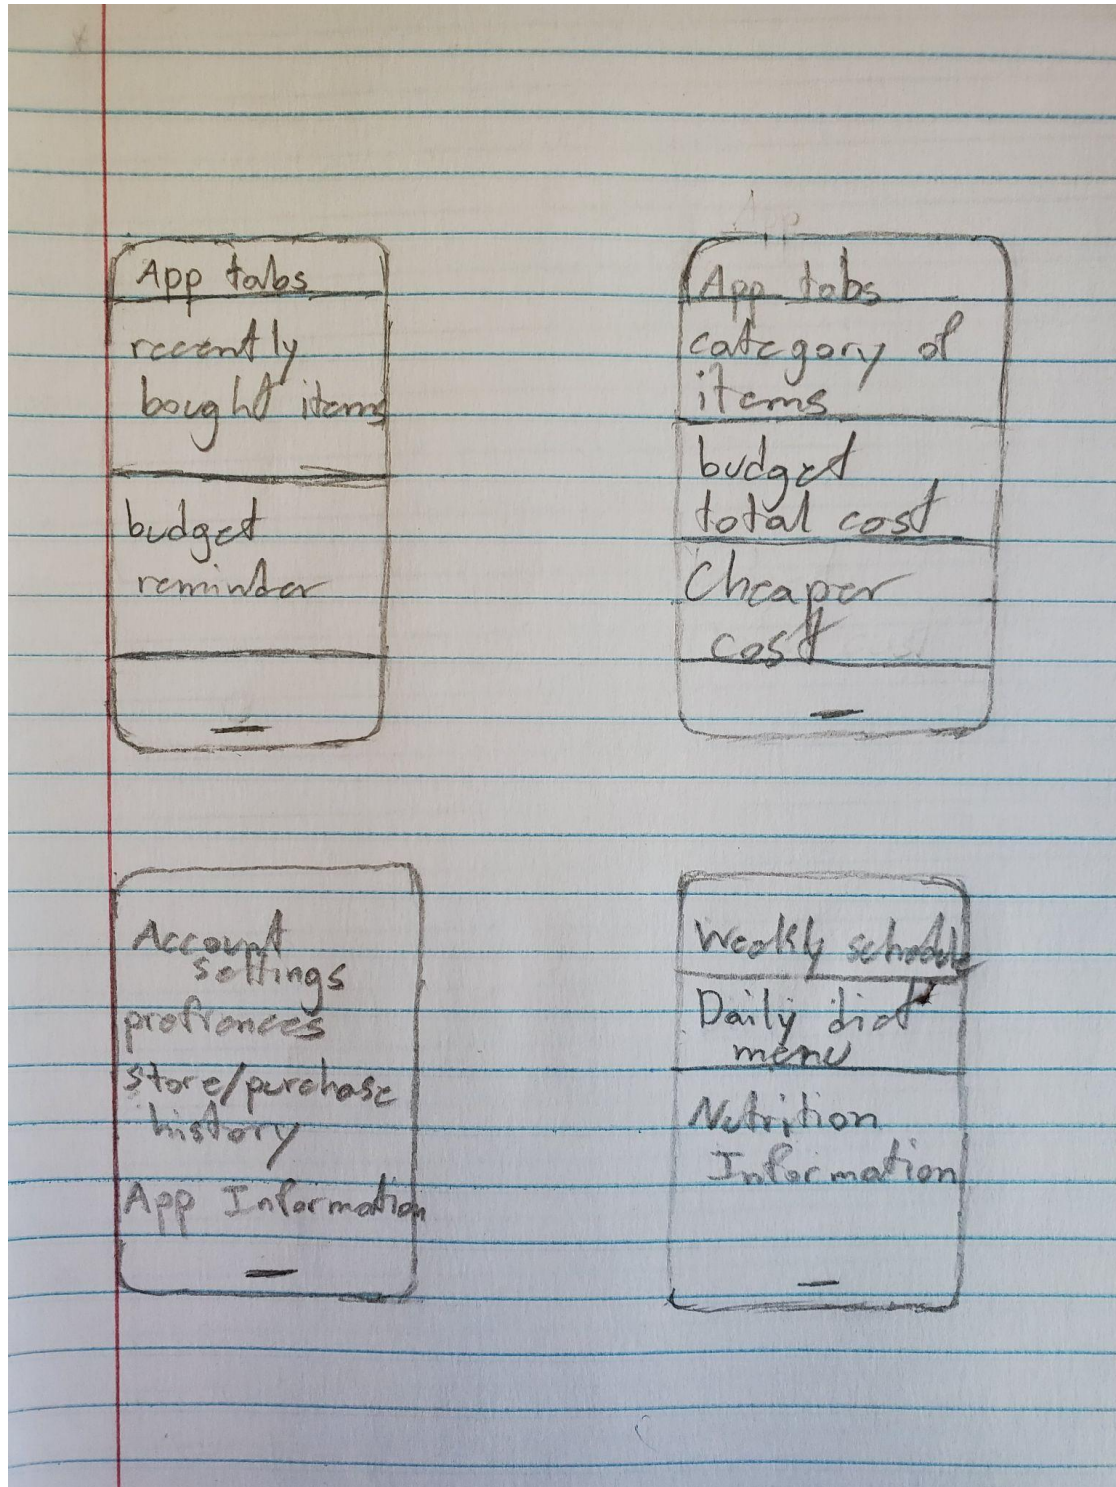 App tabs
recently
bought items
budget
reminder
App
App tabs
category of
items
budget
total cost
Cheaper
cost
Account
settings
prefrences
store/purchase
history
App Information
Weekly schedule
Daily diet
menu
Nutrition
Information